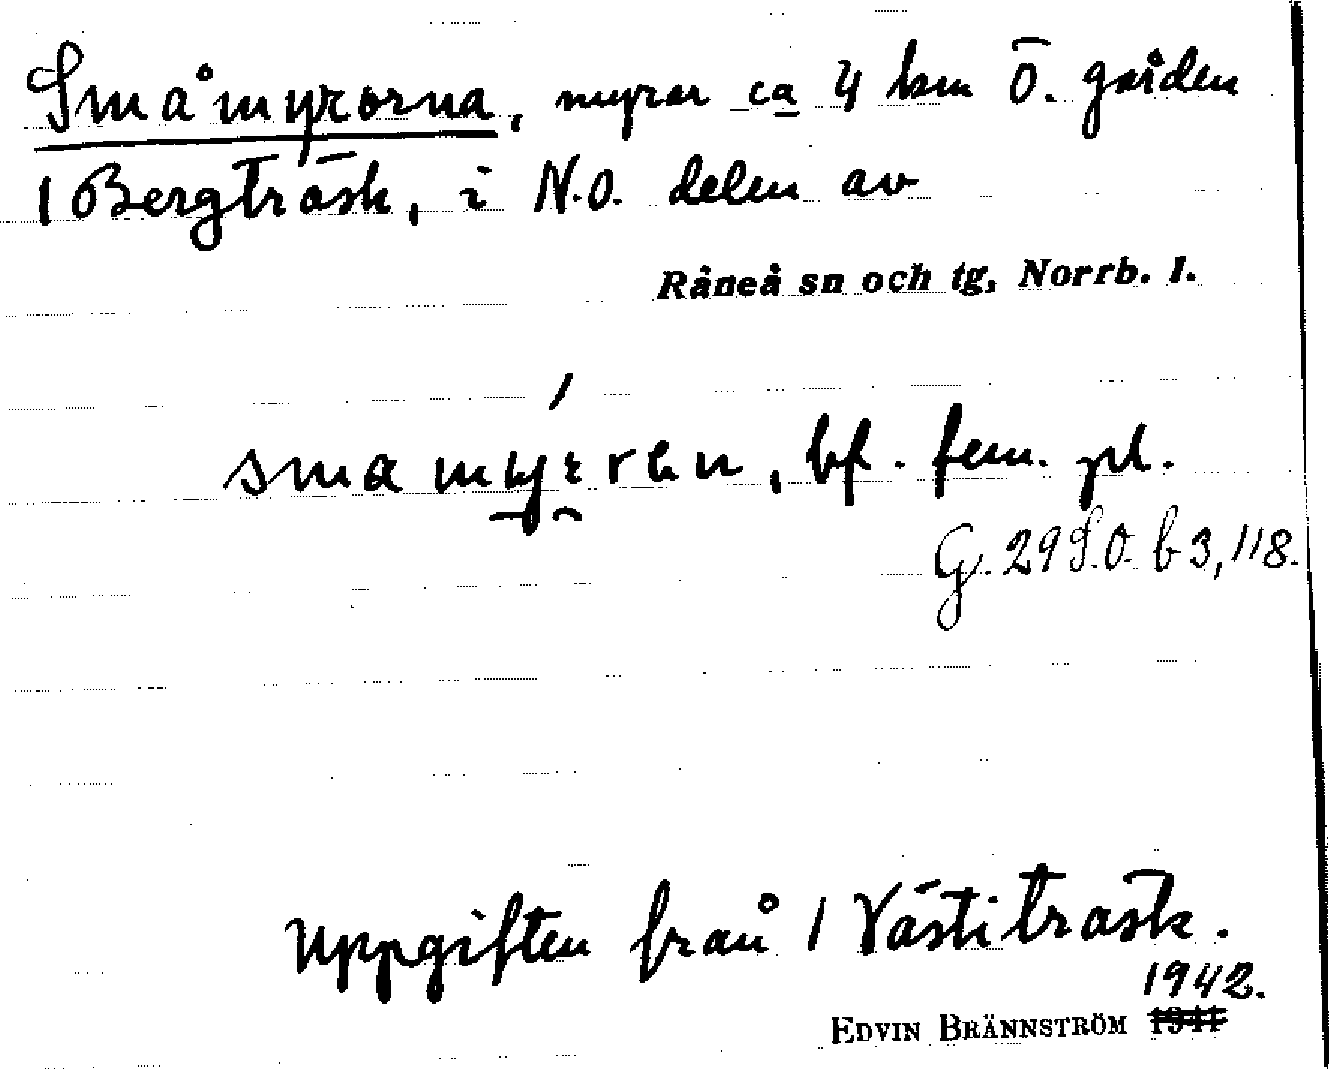 Småmyrorna, myrar ca 4 km Ö. gården
1 Bergträsk, i N.O. delen av
Råneå sn och tg, Norrb. l.
smamyrren, bf. fem. pl.
G. 29 S.O. b 3, 118.
Uppgiften från 1 Västiträsk.
1942.
EDVIN BRÄNNSTRÖM 1941